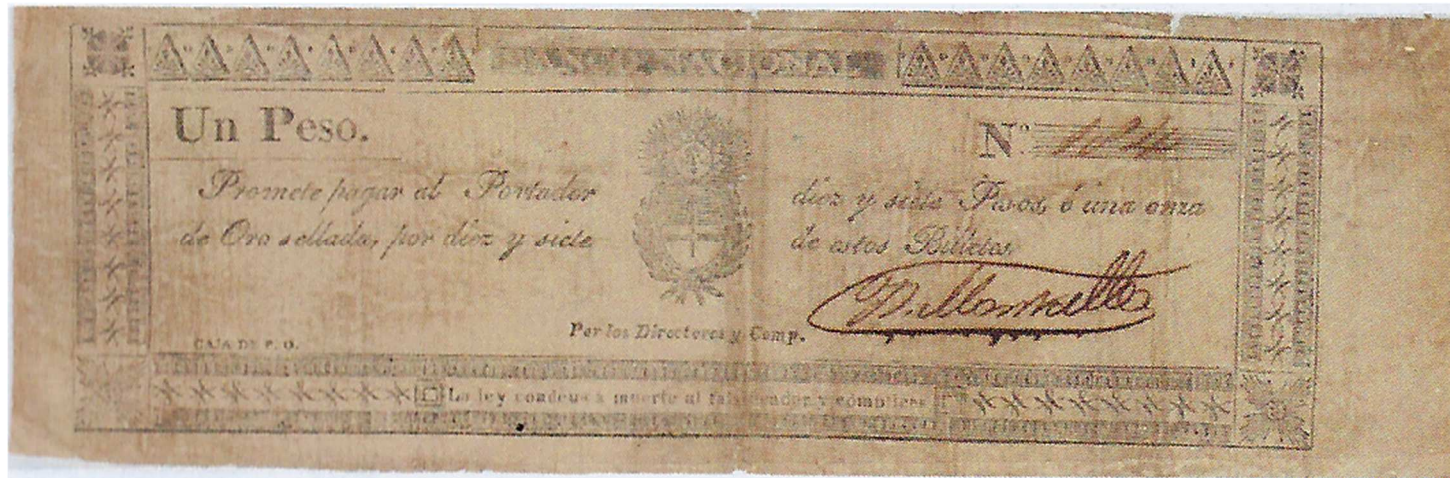 BANCO NACIONAL
Un Peso.
Nº
Promete pagar al Portador diez y siete Pesos, ó una onza
de Oro sellada, por diez y siete de estos Billetes.
Por los Directores y Comp.
CAJA DE P. O.
La ley condena a muerte al falsificador y cómplices